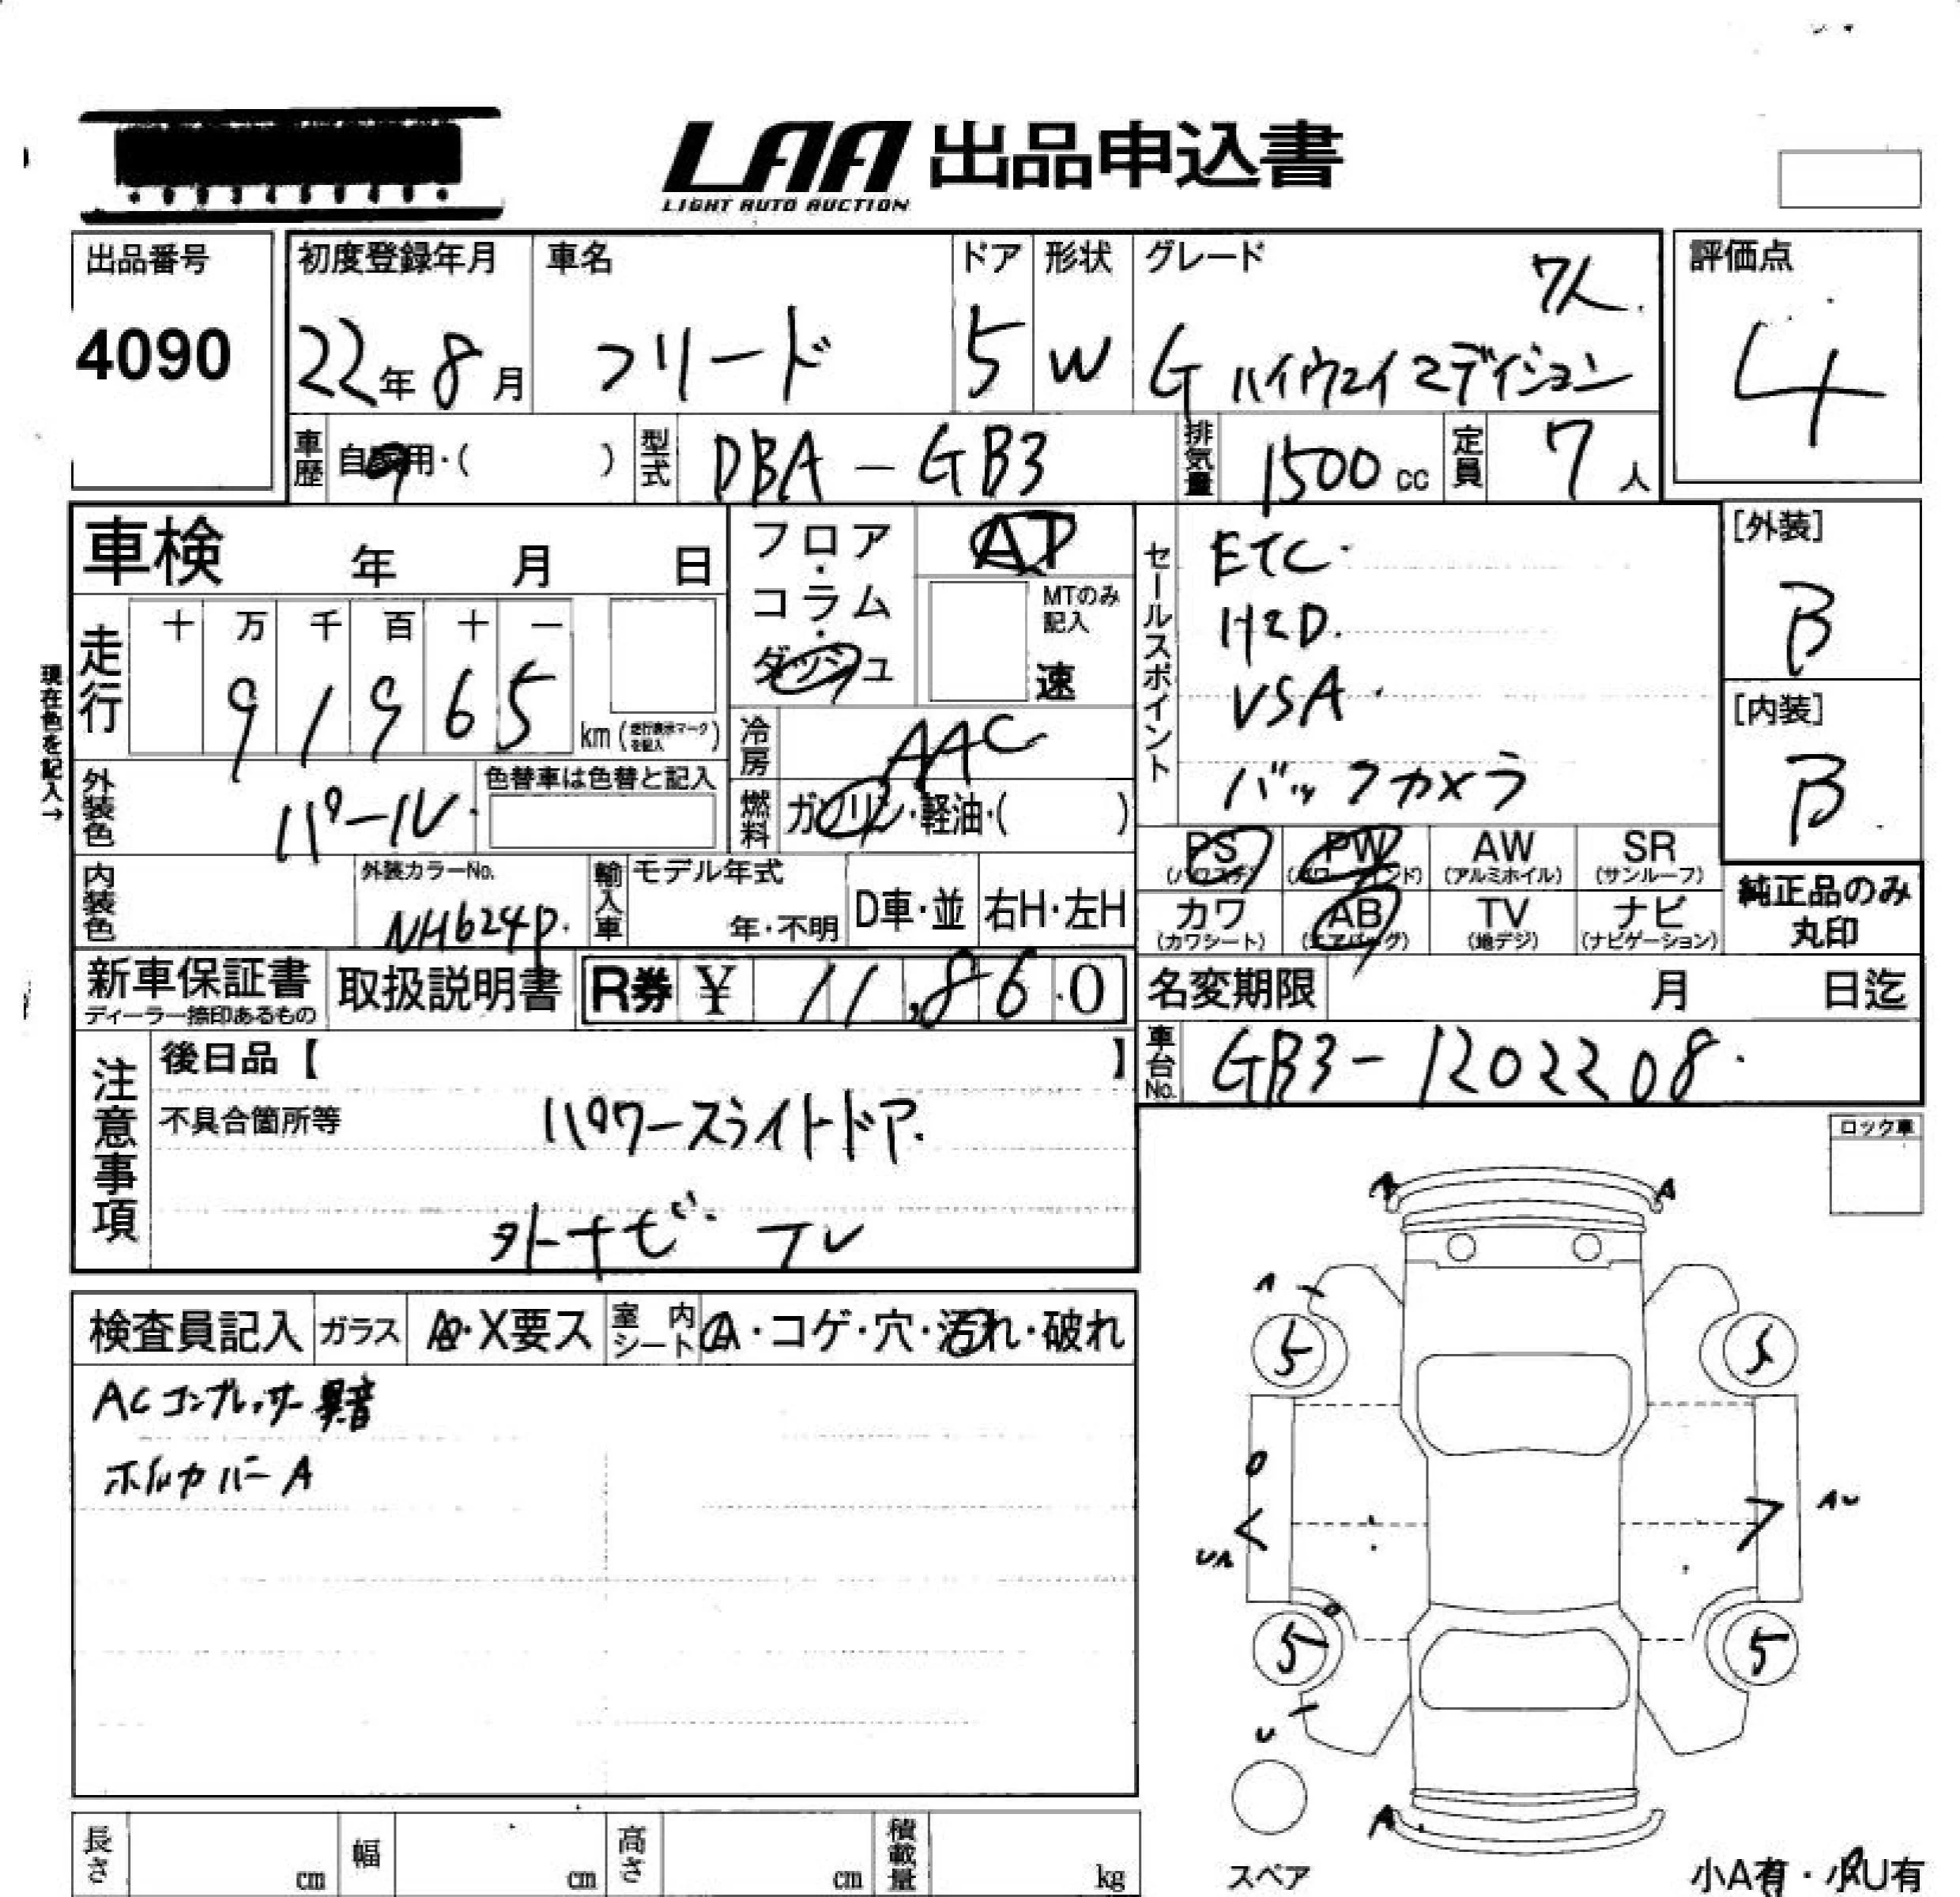 LAA 出品申込書
LIGHT AUTO AUCTION
出品番号
4090
初度登録年月
22年 8月
車名
フリード
ドア
5
形状
W
グレード
7人
G ハイウェイエディション
評価点
4
車歴
自家用・( )
型式
DBA-GB3
排気量
1500 cc
定員
7人
車検 年 月 日
走行
十 万 千 百 十 一
9 1 9 6 5
km (走行表示マークを記入)
現在色を記入→
外装色
パール
色替車は色替と記入
内装色
外装カラーNo.
NH624P
輸入車
モデル年式
年・不明
D車・並
右H・左H
フロア・コラム・ダッシュ
AT
MTのみ記入
速
冷房
AAC
燃料
ガソリン・軽油・( )
セールスポイント
ETC
H2D.
VSA
バックカメラ
PS
(パワステ)
PW
(パワーウインド)
AW
(アルミホイル)
SR
(サンルーフ)
カワ
(カワシート)
AB
(エアバッグ)
TV
(地デジ)
ナビ
(ナビゲーション)
[外装]
B
[内装]
B
純正品のみ丸印
新車保証書
ディーラー捺印あるもの
取扱説明書
R券 ¥ 11,860
名変期限 月 日迄
車台No.
GB3-1202208
注意事項
後日品【 】
不具合箇所等
パワースライトドア.
外ナビ テレ
ロック車
検査員記入
ガラス
A・X要ス
室内シート
A・コゲ・穴・汚れ・破れ
ACコンプレッサー異音
ホイルカバーA
A A
A
5 5
UA
AU
5 5
U
A
スペア
小A有・小U有
長さ cm
幅 cm
高さ cm
積載量 kg